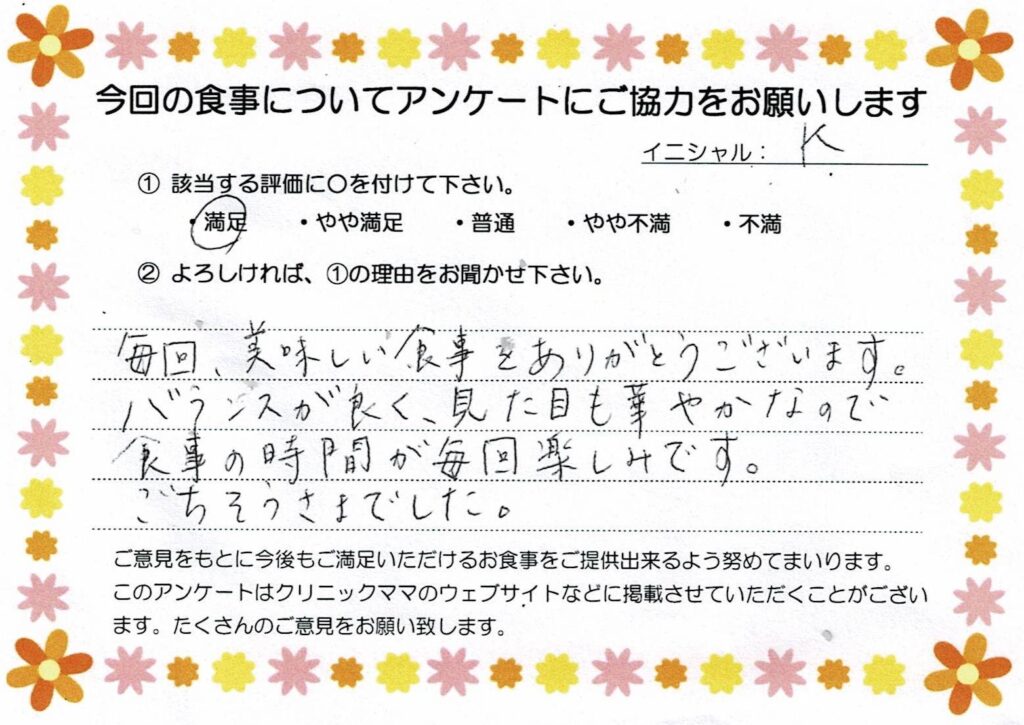 今回の食事についてアンケートにご協力をお願いします
イニシャル： K
① 該当する評価に○を付けて下さい。
・満足 ・やや満足 ・普通 ・やや不満 ・不満
② よろしければ、①の理由をお聞かせ下さい。
毎回、美味しい食事をありがとうございます。
バランスが良く、見た目も華やかなので
食事の時間が毎回楽しみです。
ごちそうさまでした。
ご意見をもとに今後もご満足いただけるお食事をご提供出来るよう努めてまいります。
このアンケートはクリニックママのウェブサイトなどに掲載させていただくことがござい
ます。たくさんのご意見をお願い致します。